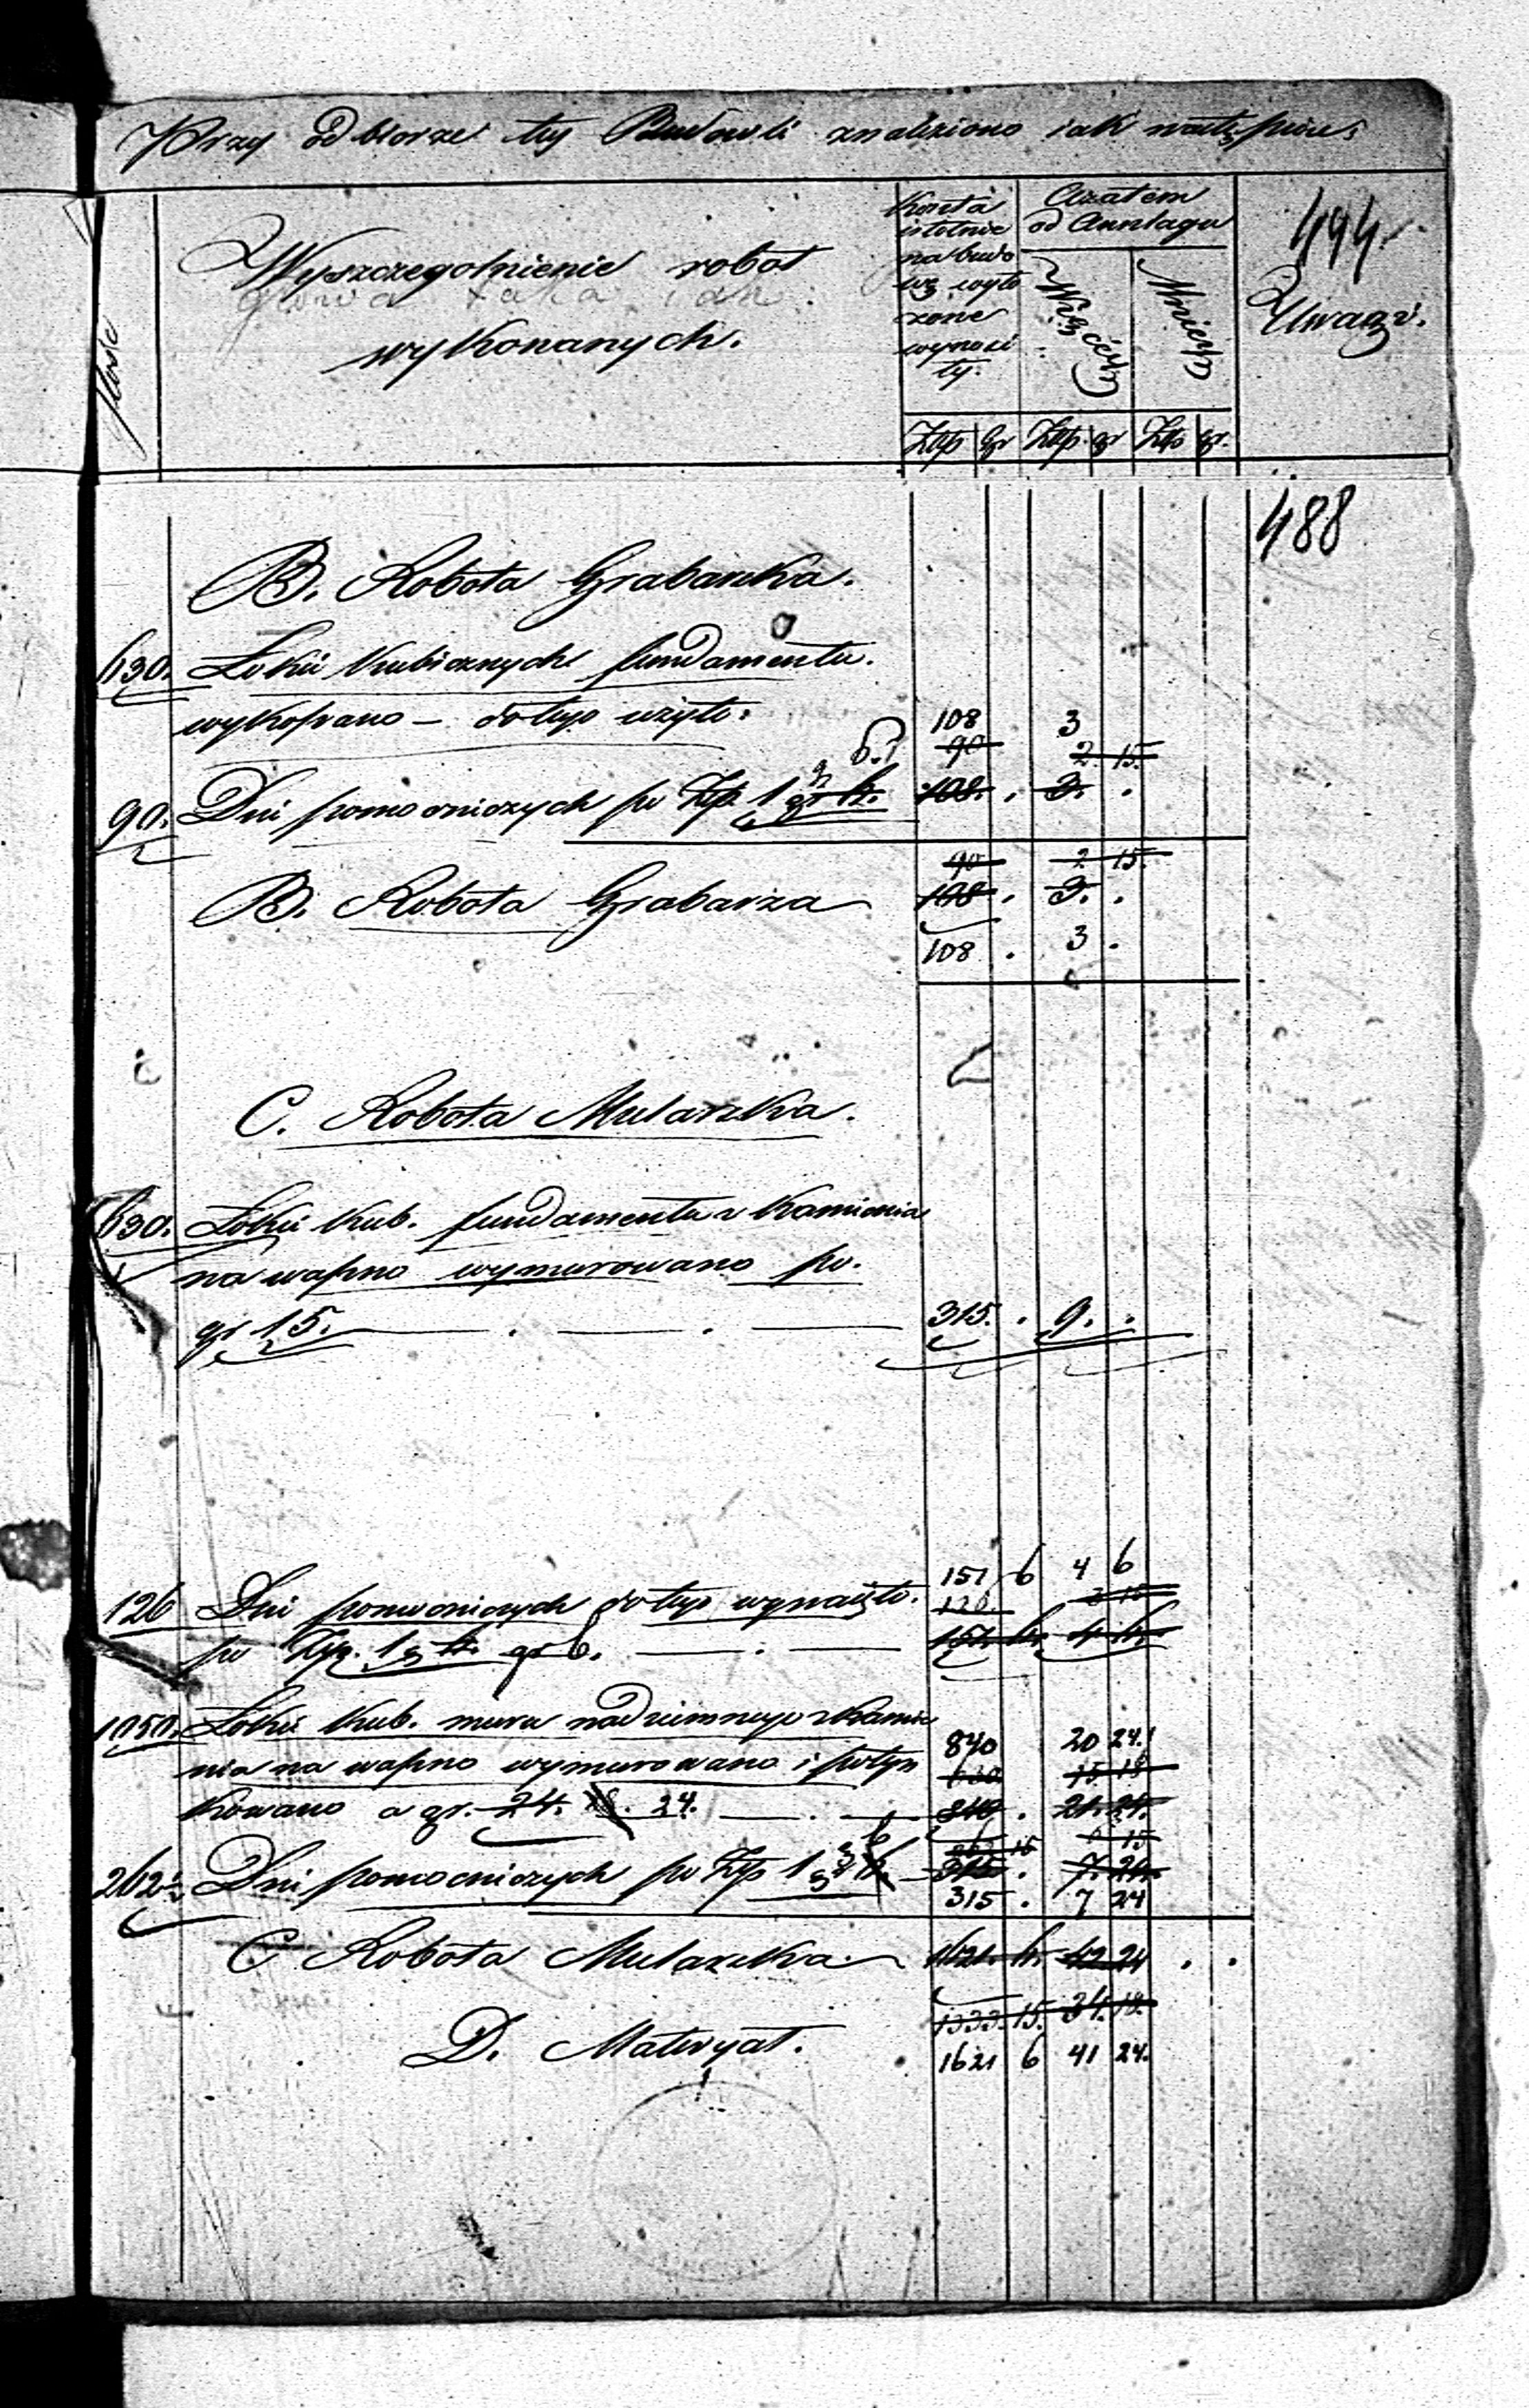 Przy odbiorze tey Budowli znaleziono iak następuie:
Ilość
Wyszczegolnienie robot
wykonanych.
Koszta
istotnie
na budo
wę wyło
żone
wynosi
ły.
Azatem
od Anszlagu
Więcéy
Mniéy
494
Uwagi.
Złp gr Złp. gr Złp gr.
488
B. Robota Grabarska.
630. Łokci kubicznych fundamentu.
wykopano — do tego użyto:
108 3
90 2 15.
90. Dni pomocniczych po Złp. 1 gr 6. 108. . 3. .
90 2 15.
B. Robota Grabarza 108 . 3. .
108 . 3 .
C. Robota Mularska.
630. Łokci kub. fundamentu z kamienia
na wapno wymurowano po.
gr 15. 315. . 9. .
151 6 4 6
126 Dni pomocniczych do tego wynaięto. 126. 3 15
po Złp. 1 gr 6. 151. 6. 4 6.
1050. Łokci kub. muru nadziemnego z kamie
nia na wapno wymurowano i potyn 840 20 24.
630 15 18
kowano a gr. 24. 18. 24. 840 . 21. 24.
262 15 6 15
262½ Dni pomocniczych po Złp 1 gr 6. 315. . 7. 24.
315 . 7 24
C Robota Mularska. 1621. 6. 42 24 . .
1333. 15. 34. 18.
D. Materyał. 1621 6 41 24.